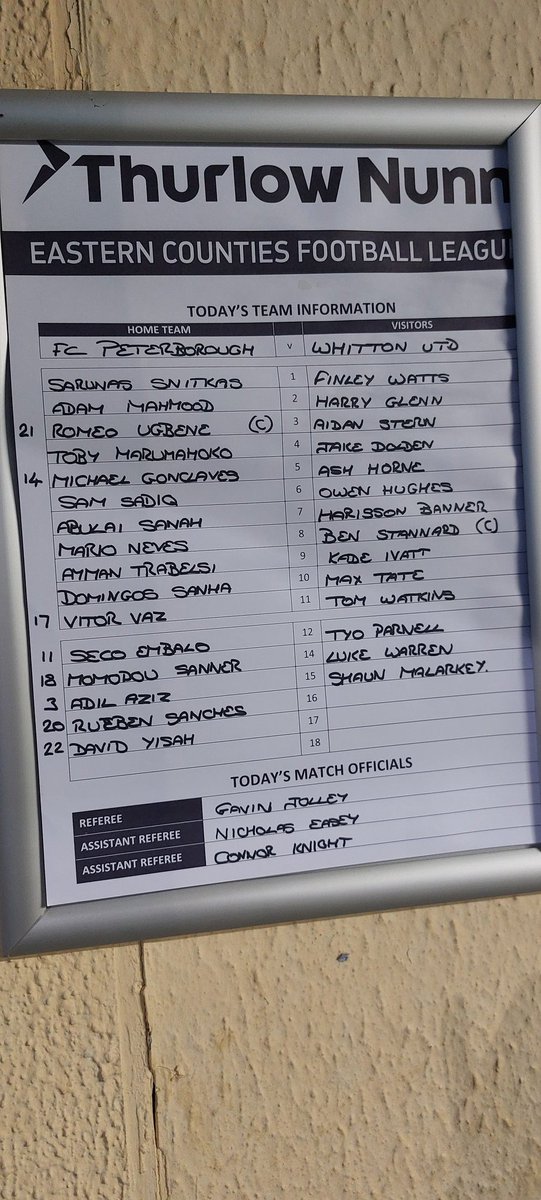 Thurlow Nunn
EASTERN COUNTIES FOOTBALL LEAGU
TODAY'S TEAM INFORMATION
HOME TEAM VISITORS
FC PETERBOROUGH v WHITTON UTD
SARUNAS SNITKAS 1 FINLEY WATTS
ADAM MAHMOOD 2 HARRY GLENN
21 ROMEO UGBENE (C) 3 AIDAN STERN
TOBY MARUMAHOKO 4 JAKE DOLDEN
14 MICHAEL GONCLAVES 5 ASH HORNE
SAM SADIQ 6 OWEN HUGHES
ABULAI SANAH 7 HARISSON BANNER
MARIO NEVES 8 BEN STANNARD (C)
AYMAN TRABELSI 9 KADE IVATT
DOMINGOS SANHA 10 MAX TATE
17 VITOR VAZ 11 TOM WATKINS
11 SECO EMBALO 12 TYO PARNELL
18 MOMODOU SANNER 14 LUKE WARREN
3 ADIL AZIZ 15 SHAUN MALARKEY.
20 RUEBEN SANCHES 16
22 DAVID YISAH 17
18
TODAY'S MATCH OFFICIALS
REFEREE GAVIN JOLLEY
ASSISTANT REFEREE NICHOLAS EASEY
ASSISTANT REFEREE CONNOR KNIGHT